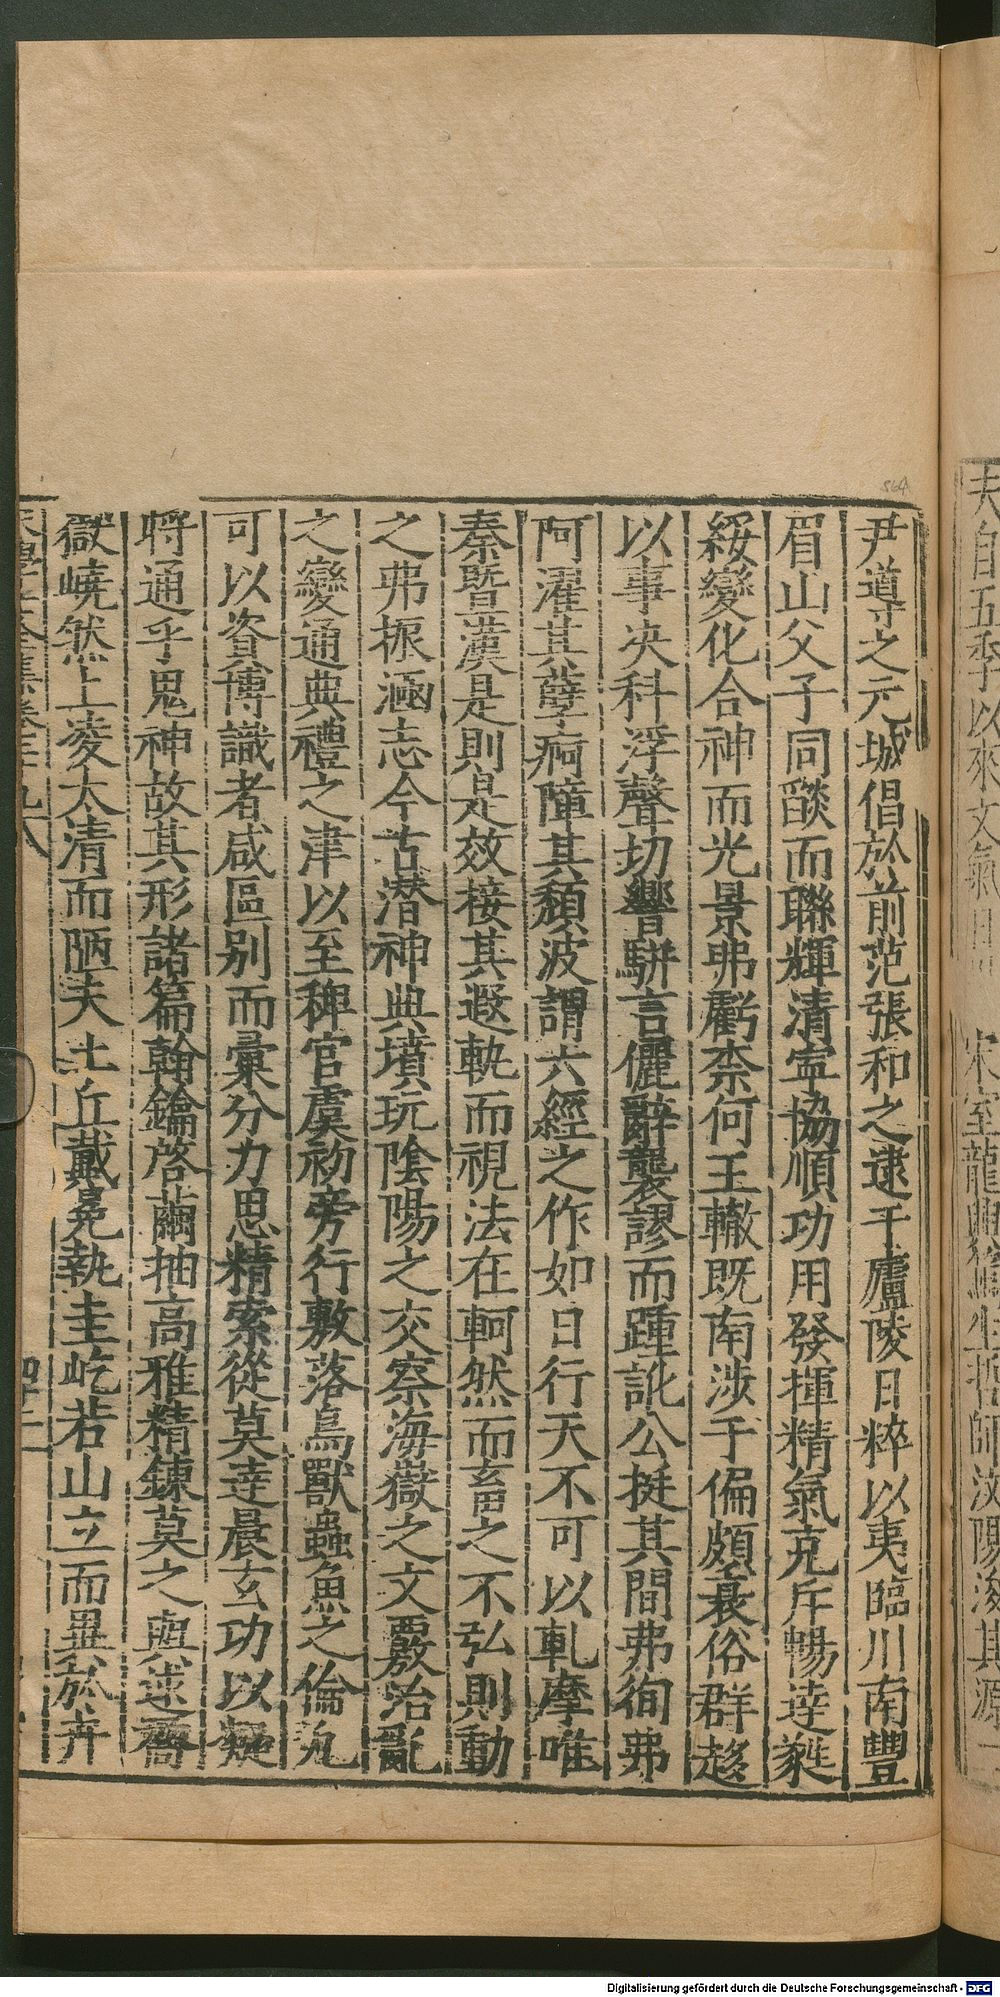 夫自五季以來文氣日 宋室龍興 生哲師汶陽浚其源
尹導之元城倡於前范張和之逮于廬陵日粹以夷臨川南豐
眉山父子同燄而聯輝清寧協順功用發揮精氣克斥暢逹蕤
綏變化合神而光景弗虧柰何王轍既南涉于偏頗衰俗群趍
以事夫科浮聲切響駢言儷辭襲謬而踵訛公挺其間弗徇弗
阿濯其孽痾障其頽波謂六經之作如日行天不可以軋摩唯
秦暨漢是則是效接其遐軌而視法在軻然而畜之不弘則動
之弗振涵志今古潜神典墳玩陰陽之交察海嶽之文覈治亂
之變通典禮之津以至稗官虞初旁行敷落鳥獸蟲魚之倫凢
可以資博識者咸區别而彚分力思精索從莫逹晨玄功以凝
將通乎鬼神故其形諸篇翰鑰啓蘭抽高雅精鍊莫之與逑喬
嶽嶢然上凌太清而陋夫土丘戴冕執圭屹若山立而異於卉
四十二
564
Digitalisierung gefördert durch die Deutsche Forschungsgemeinschaft - DFG